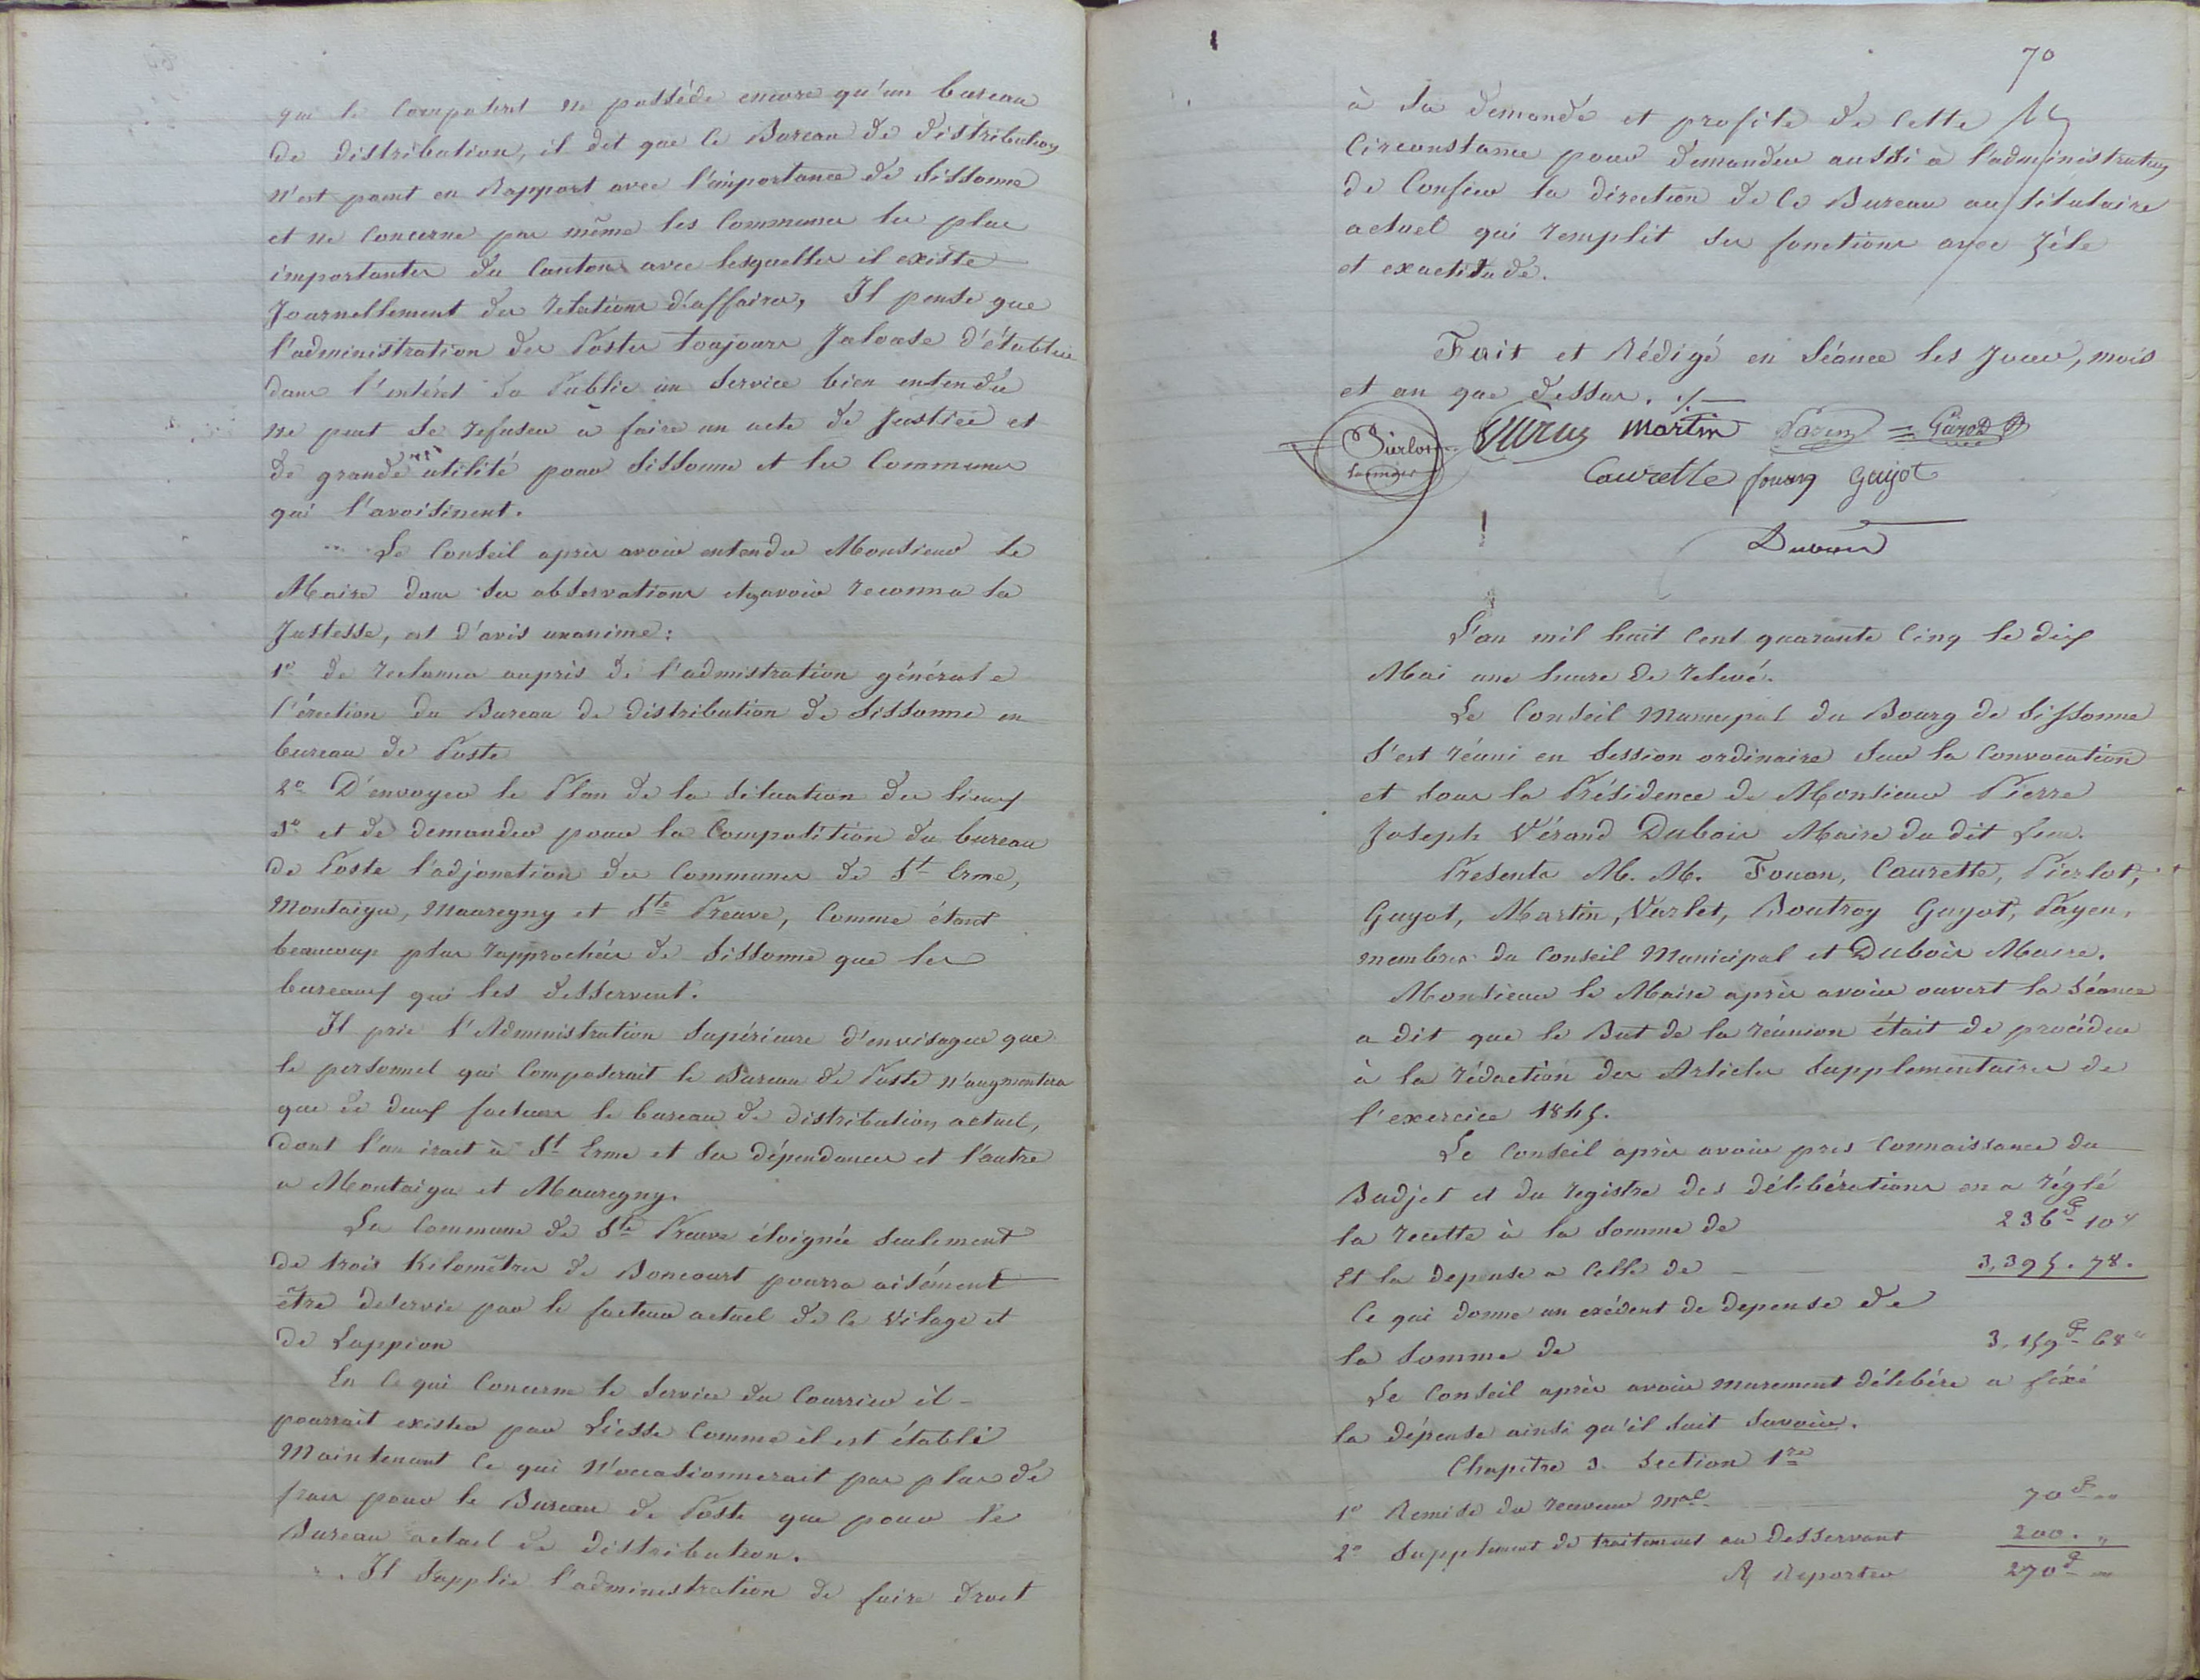 qui le composent ne posséde encore qu'un bureau
de distribution, il dit que ce Bureau de distribution
n'est point en Rapport avec l'importance de Sissonne
et ne concerne pas même les Communes les plus
importantes du Canton avec lesquelles il existe
Journellement des relations d'affaires, Il pense que
l'administration des Postes toujours Jalouse d'établir
dans l'intéret du Public un service bien entendu
ne peut se refuser à faire un acte de Justice et
de grande utilité pour Sissonne et les Communes
qui l'avoisinent.
Le Conseil après avoir entendu Monsieur le
Maire dans ses observations et avoir reconnu la
Justesse, est d'avis unanime:
1º de reclamer auprès de l'admistration générale
l'érection du Bureau de distribution de Sissonne en
bureau de Poste
2º D'envoyer le Plan de la situation des lieux
3º et de demander pour la Composition du bureau
de Poste l'adjonction des Communes de St Erme,
Montaigu, Mauregny et Ste Preuve, Comme étant
beaucoup plus rapprochées de Sissonne que les
bureaux qui les desservent.
Il prie l'Administration Supérieure d'envisager que
le personnel qui Composerait le Bureau de Poste n'augmentera
que de deux facteurs le bureau de distribution actuel,
dont l'un irait à St Erme et ses dépendances et l'autre
a Montaigu et Mauregny.
La Commune de Ste Preuve éloignée seulement
de trois Kilomêtres de Boncourt pourra aisément
être deservie par le facteur actuel de ce Vilage et
de Lappion
En ce qui Concerne le service du Courrier il
pourrait exister par Liesse Comme il est établi
Maintenant ce qui n'occasionnerait pas plus de
frais pour le Bureau de Poste que pour le
Bureau actuel de distribution.
Il supplie l'administration de faire droit
70
à sa demande et profite de cette
Circonstance pour demander aussi à l'administration
de Confier la direction de ce Bureau au titulaire
actuel qui remplit ses fonctions avec zéle
et exactitude.
Fait et Rédigé en Séance les Jour, mois
et an que dessus.
Pierlot Martin Payen Guyot
Caurette fouan Guyot
Dubois
L'an mil huit cent quarante cinq le dix
Mai une heure de relevé.
Le Conseil Municipal du Bourg de Sissonne
s'est réuni en session ordinaire sur la convocation
et sous la Présidence de Monsieur Pierre
Joseph Vérand Dubois Maire du dit Lieu.
Présents M. M. Fouan, Caurette, Pierlot,
Guyot, Martin, Varlet, Boutroy Guyot, Payen,
membres du Conseil Municipal et Dubois Maire.
Monsieur le Maire après avoir ouvert la Séance
a dit que le But de la réunion était de procéder
à la rédaction des Articles Supplementaires de
l'exercice 1845.
Le Conseil après avoir pris Connaissance du
Budjet et du registre des délibérations en a réglé
la recette à la somme de 236f 10c
Et la depense a celle de 3,395. 78.
Ce qui donne un exédent de depense de
la somme de 3,159f 68c
Le Conseil après avoir murement délibére a fixé
la dépense ainsi qu'il suit Savoir.
Chapitre 3. Section 1re
1º Remise du receveur Mal 70f "
2º Supplement de traitement au Desservant 200. "
A Reporter 270f "